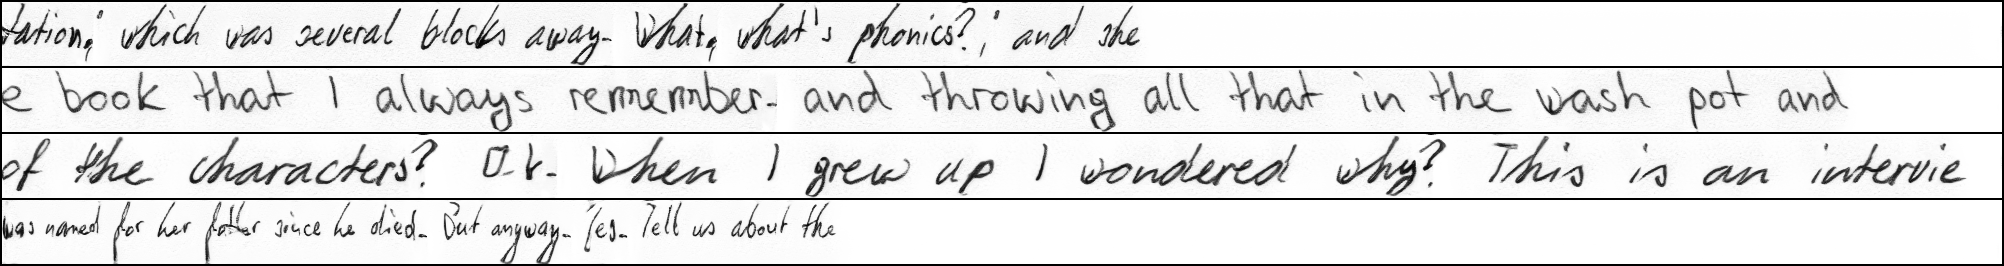 tation," which was several blocks away. What, what's phonics?," and she
e book that I always remember. and throwing all that in the wash pot and
of the characters? O.k. When I grew up I wondered why? This is an intervie
was named for her father since he died. But anyway. Yes. Tell us about the